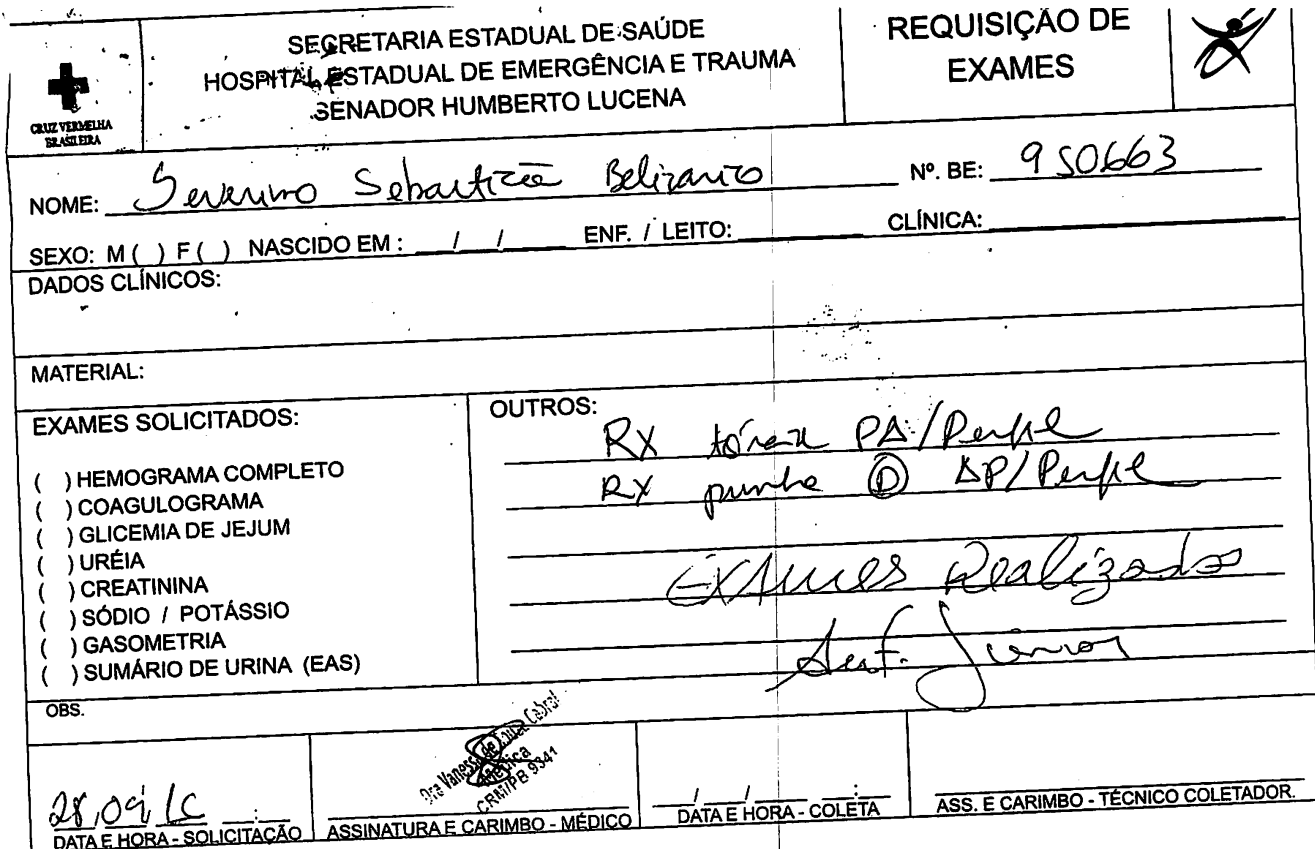 SECRETARIA ESTADUAL DE SAÚDE
HOSPITAL ESTADUAL DE EMERGÊNCIA E TRAUMA
SENADOR HUMBERTO LUCENA
REQUISIÇÃO DE
EXAMES
CRUZ VERMELHA
BRASILEIRA
NOME: Severino Sebastião Belizario Nº. BE: 950663
SEXO: M ( ) F ( ) NASCIDO EM : / / ENF. / LEITO: CLÍNICA:
DADOS CLÍNICOS:
MATERIAL:
EXAMES SOLICITADOS:
( ) HEMOGRAMA COMPLETO
( ) COAGULOGRAMA
( ) GLICEMIA DE JEJUM
( ) URÉIA
( ) CREATININA
( ) SÓDIO / POTÁSSIO
( ) GASOMETRIA
( ) SUMÁRIO DE URINA (EAS)
OUTROS:
RX tórax PA/Perfil
RX punho D AP/Perfil
Exames Realizados
Júnior
OBS.
28,09, :
DATA E HORA - SOLICITAÇÃO
Dra Vanessa de Cabral
CRM/PB 9341
ASSINATURA E CARIMBO - MÉDICO
/ / :
DATA E HORA - COLETA
ASS. E CARIMBO - TÉCNICO COLETADOR.